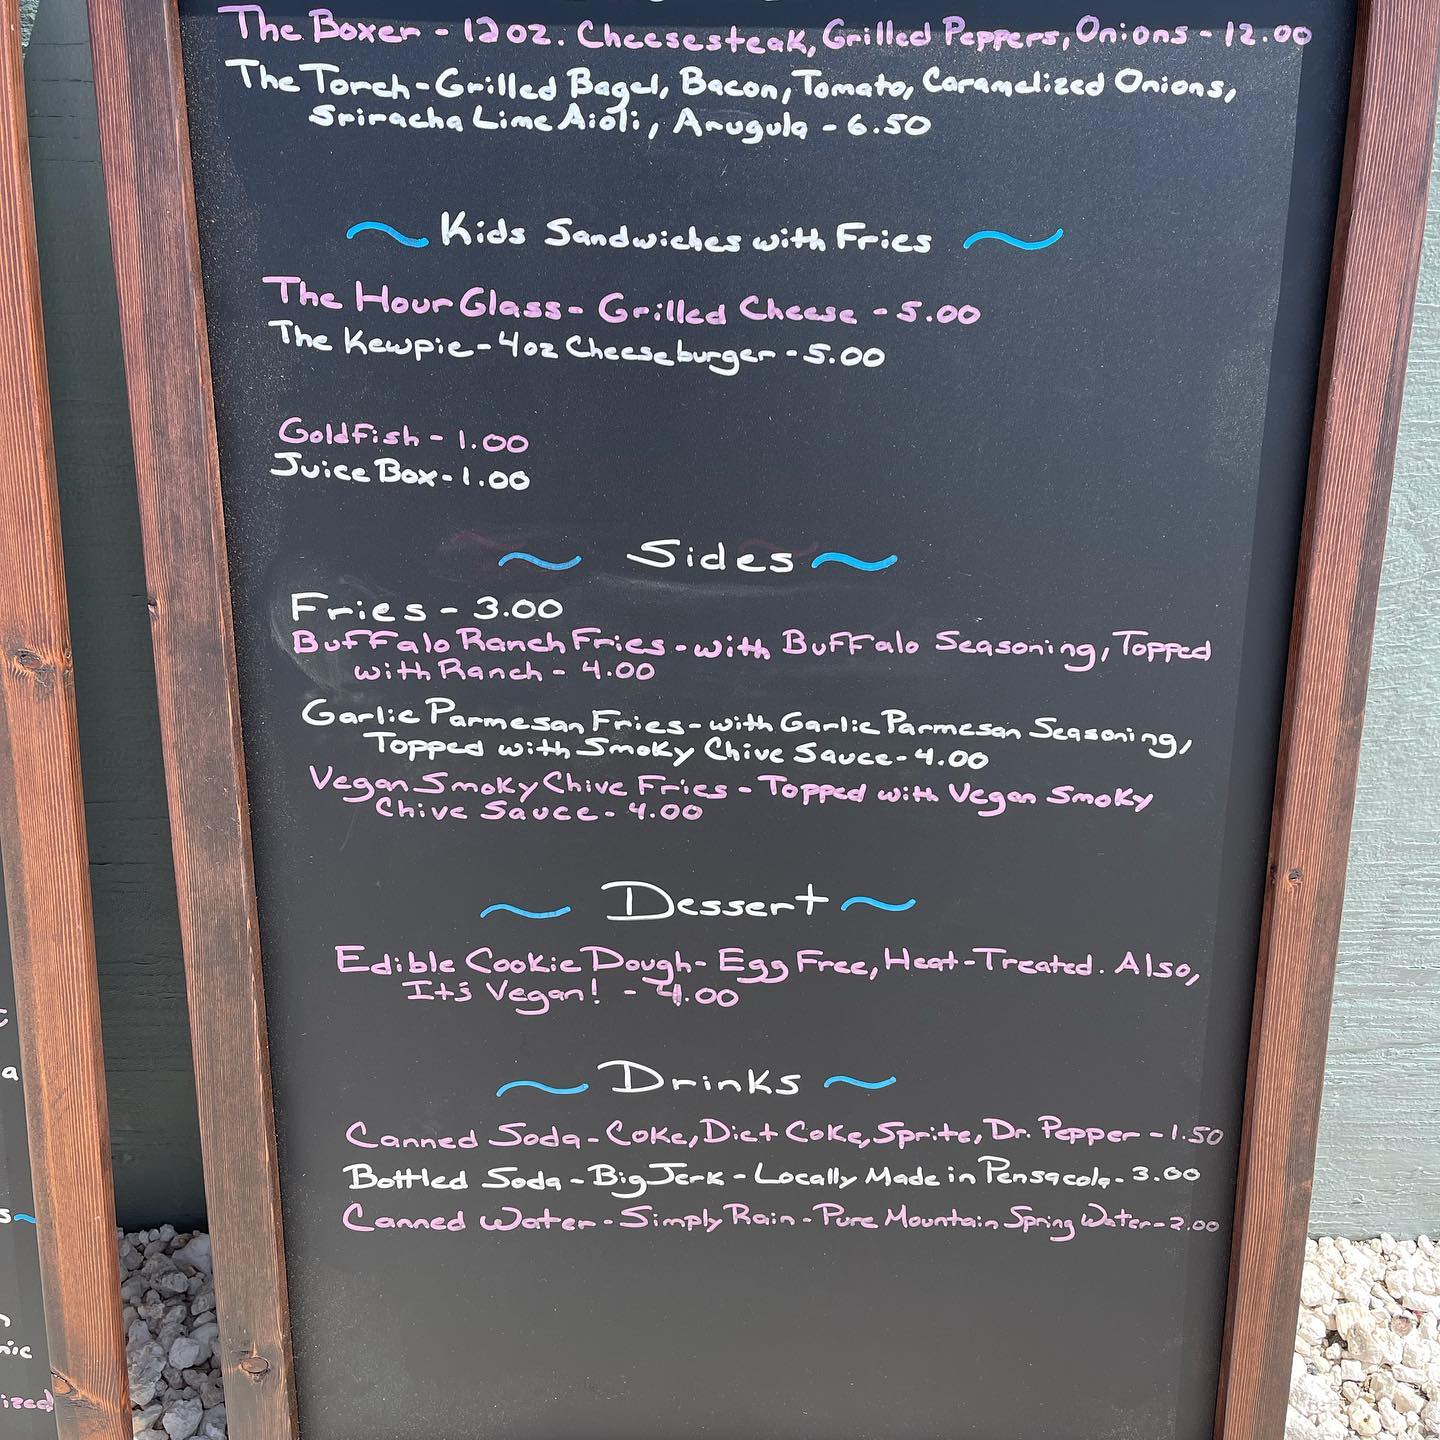 The Boxer - 12oz. Cheesesteak, Grilled Peppers, Onions - 12.00
The Torch - Grilled Bagel, Bacon, Tomato, Caramelized Onions,
Sriracha Lime Aioli, Arugula - 6.50
~ Kids Sandwiches with Fries ~
The Hour Glass - Grilled Cheese - 5.00
The Kewpie - 4oz Cheeseburger - 5.00
Goldfish - 1.00
Juice Box - 1.00
~ Sides ~
Fries - 3.00
Buffalo Ranch Fries - with Buffalo Seasoning, Topped
with Ranch - 4.00
Garlic Parmesan Fries - with Garlic Parmesan Seasoning,
Topped with Smoky Chive Sauce - 4.00
Vegan Smoky Chive Fries - Topped with Vegan Smoky
Chive Sauce - 4.00
~ Dessert ~
Edible Cookie Dough - Egg Free, Heat-Treated. Also,
It's Vegan! - 4.00
~ Drinks ~
Canned Soda - Coke, Diet Coke, Sprite, Dr. Pepper - 1.50
Bottled Soda - Big Jerk - Locally Made in Pensacola - 3.00
Canned Water - Simply Rain - Pure Mountain Spring Water - 2.00